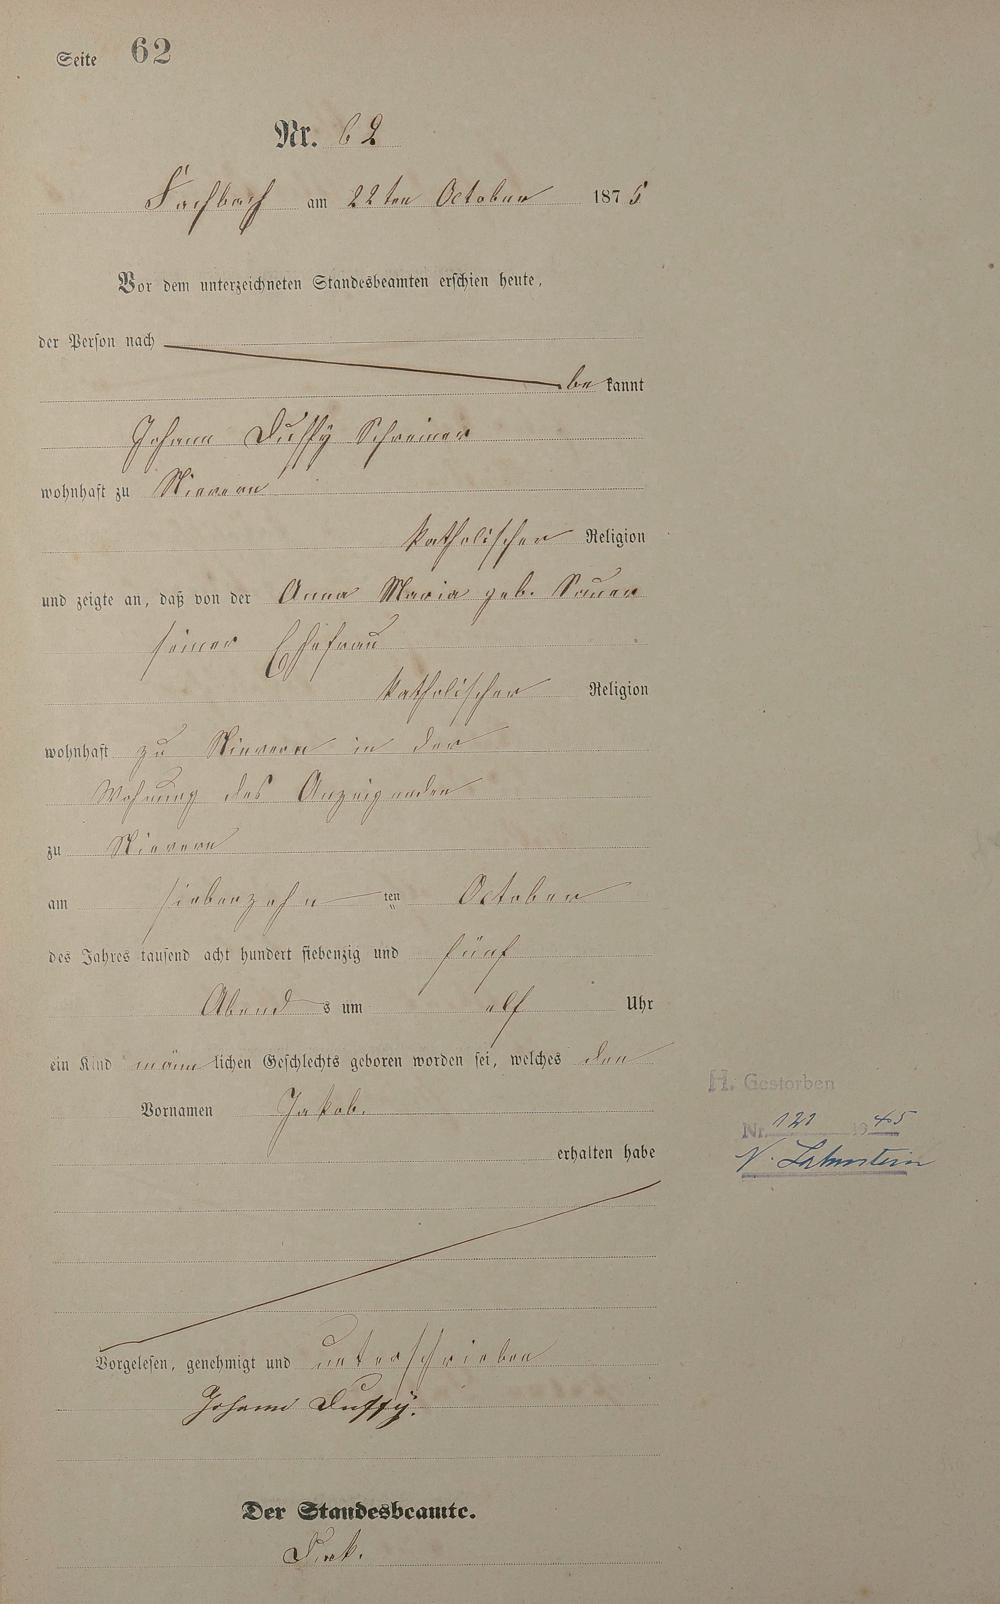 Seite 62
Nr. 62
Fachbach am 22ten October 1875
Vor dem unterzeichneten Standesbeamten erschien heute,
der Person nach
be kannt
Johann Duffy Schreiner
wohnhaft zu Nievern
katholischer Religion
und zeigte an, daß von der Anna Maria geb. Sauer
seiner Ehefrau
katholischer Religion
wohnhaft zu Nievern in der
Wohnung des Anzeigenden
zu Nievern
am siebenzehn ten October
des Jahres tausend acht hundert siebenzig und fünf
Abend s um elf Uhr
ein Kind männ lichen Geschlechts geboren worden sei, welches den
Vornamen Jakob.
erhalten habe
H. Gestorben
Nr. 121 1945
N. Lahnstein
Vorgelesen, genehmigt und unterschrieben
Johann Duffy.
Der Standesbeamte.